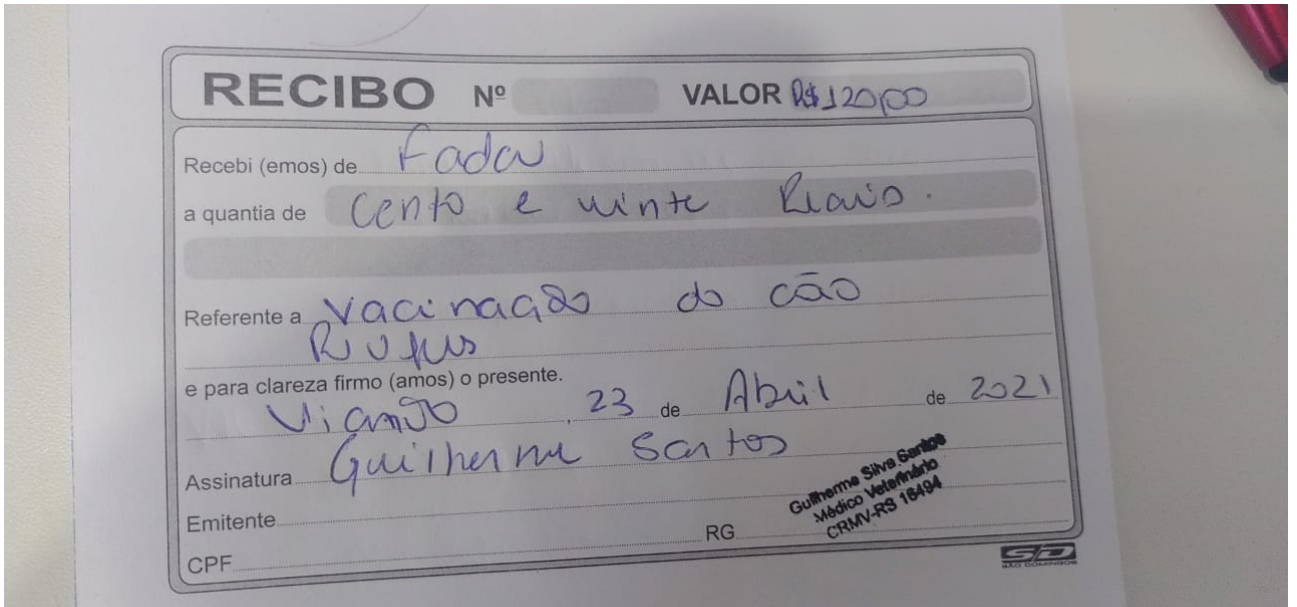 RECIBO Nº VALOR R$ 120,00
Recebi (emos) de Fada
a quantia de Cento e vinte Reais.
Referente a Vacinação do cão
Rufus
e para clareza firmo (amos) o presente.
Viamão, 23 de Abril de 2021
Assinatura Guilherme Santos
Guilherme Silva Santos
Médico Veterinário
CRMV-RS 18494
Emitente
RG
CPF
SD
SÃO DOMINGOS